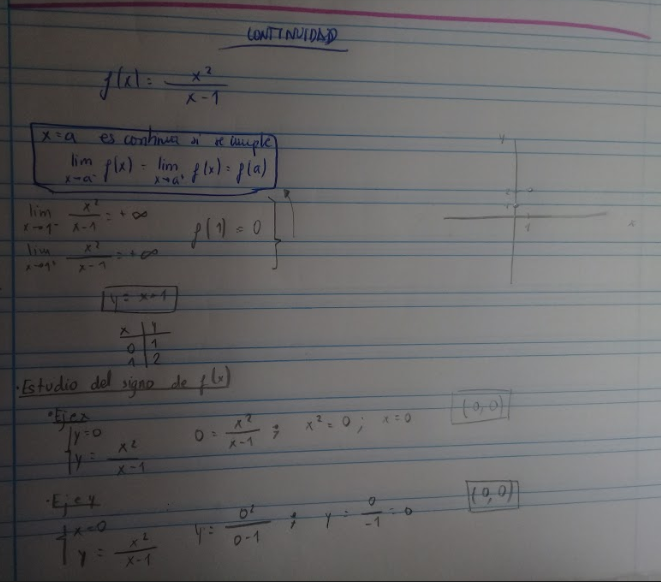 CONTINUIDAD
f(x) = x²/(x-1)
x=a es continua si se cumple
lim x→a⁻ f(x) = lim x→a⁺ f(x) = f(a)
lim x→1⁻ x²/(x-1) = -∞
f(1) = 0
lim x→1⁺ x²/(x-1) = +∞
y = x+1
x | y
0 | 1
1 | 2
y
x
1
· Estudio del signo de f(x)
· Eje x
y=0
y = x²/(x-1)
0 = x²/(x-1) ; x² = 0 ; x=0 (0,0)
· Eje y
x=0
y = x²/(x-1)
y = 0²/(0-1) ; y = 0/-1 = 0 (0,0)